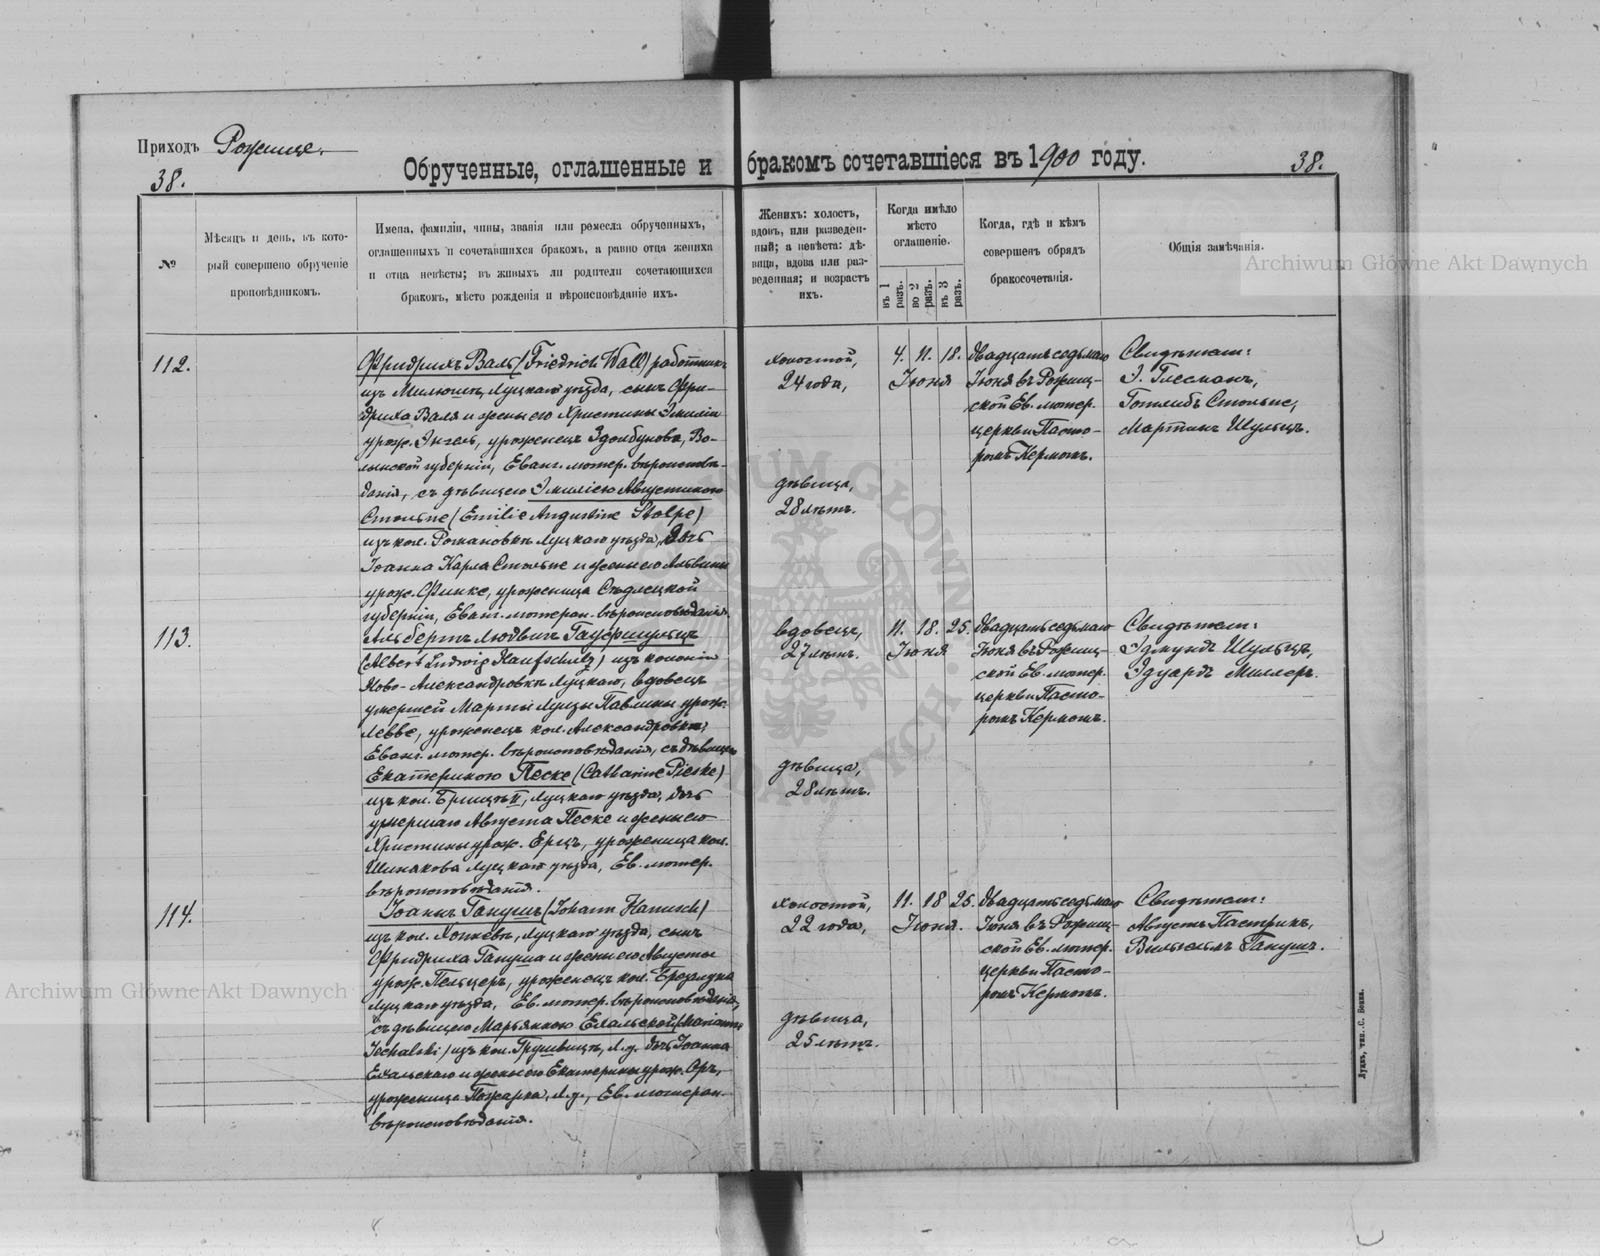 Приходъ Рожище.
Обрученные, оглашенные и бракомъ сочетавшіеся въ 1900 году.
38.
38.
№
Мѣсяцъ и день, въ кото-
рый совершено обрученіе
проповѣдникомъ.
Имена, фамиліи, чины, званія или ремесла обрученныхъ,
оглашенныхъ и сочетавшихся бракомъ, а равно отца жениха
и отца невѣсты; въ живыхъ ли родители сочетающихся
бракомъ, мѣсто рожденія и вѣроисповѣданіе ихъ.
Женихъ: холостъ,
вдовъ, или разведен-
ный; а невѣста: дѣ-
вица, вдова или раз-
веденная; и возрастъ
ихъ.
Когда имѣло
мѣсто
оглашеніе.
въ 1 разъ.
во 2 разъ.
въ 3 разъ.
Когда, гдѣ и кѣмъ
совершенъ обрядъ
бракосочетанія.
Общія замѣчанія.
Archiwum Główne Akt Dawnych
112.
Фридрихъ Валь (Friedrich Wall) работникъ
изъ Милюшъ, Луцкаго уѣзда, сынъ Фри-
дриха Валя и жены его Христины Эмиліи
урож. Энгель, уроженецъ Здолбунова, Во-
лынской губерніи, Еванг. лютер. вѣроисповѣ-
данія, съ дѣвицею Эмиліею Августиною
Стольпе (Emilie Augustine Stolpe)
изъ кол. Романовки Луцкаго уѣзда, дочь
Іоанна Карла Стольпе и жены его Альвины
урож. Финке, уроженица Сѣдлецкой
губерніи, Еванг. лютеран. вѣроисповѣданія.
холостой,
24 года,
дѣвица,
28 лѣтъ.
4. 11. 18.
Іюня
Двадцать седьмаго
Іюня въ Рожищ-
ской Ев. лютер.
церкви Пасто-
ромъ Кермомъ.
Свидѣтели:
Э. Глесманъ,
Готлибъ Стольпе,
Мартинъ Шульцъ.
113.
Альбертъ Людвигъ Гауфшульцъ
(Albert Ludwig Haufschulz) изъ колоніи
Ново-Александровки Луцкаго, вдовецъ
умершей Марты Луизы Павлины урож.
Левве, уроженецъ кол. Александровки,
Еванг. лютер. вѣроисповѣданія, съ дѣвицею
Екатериною Песке (Catharine Pieske)
изъ кол. Брищъ II, Луцкаго уѣзда, дочь
умершаго Августа Песке и жены его
Христины урож. Ерцъ, уроженица кол.
Шинякова Луцкаго уѣзда, Ев. лютер.
вѣроисповѣданія.
вдовецъ,
27 лѣтъ.
дѣвица,
28 лѣтъ.
11. 18. 25.
Іюня
Двадцать седьмаго
Іюня въ Рожищ-
ской Ев. лютер.
церкви Пасто-
ромъ Кермомъ.
Свидѣтели:
Эдмундъ Шульцъ,
Эдуардъ Миллеръ.
114.
Іоаннъ Ганушъ (Johann Hanusch)
изъ кол. Хопневъ, Луцкаго уѣзда, сынъ
Фридриха Гануша и жены его Августы
урож. Пельцеръ, уроженецъ кол.
Луцкаго уѣзда, Ев. лютер. вѣроисповѣданія,
съ дѣвицею Марьянною Ехальской (Marianne
Jechalski) изъ кол. Грушвицъ, Л.у. дочь Іоанна
Ехальскаго и жены его Екатерины урож. Оръ,
уроженица Пожарка, Л.у., Ев. лютеран.
вѣроисповѣданія.
холостой,
22 года,
дѣвица,
25 лѣтъ.
11. 18 25.
Іюня.
Двадцать седьмаго
Іюня въ Рожищ-
ской Ев. лютер.
церкви Пасто-
ромъ Кермомъ.
Свидѣтели:
Августъ Пастрикъ,
Вильгельмъ Ганушъ.
Archiwum Główne Akt Dawnych
Луцкъ, тип. С. Бокка.